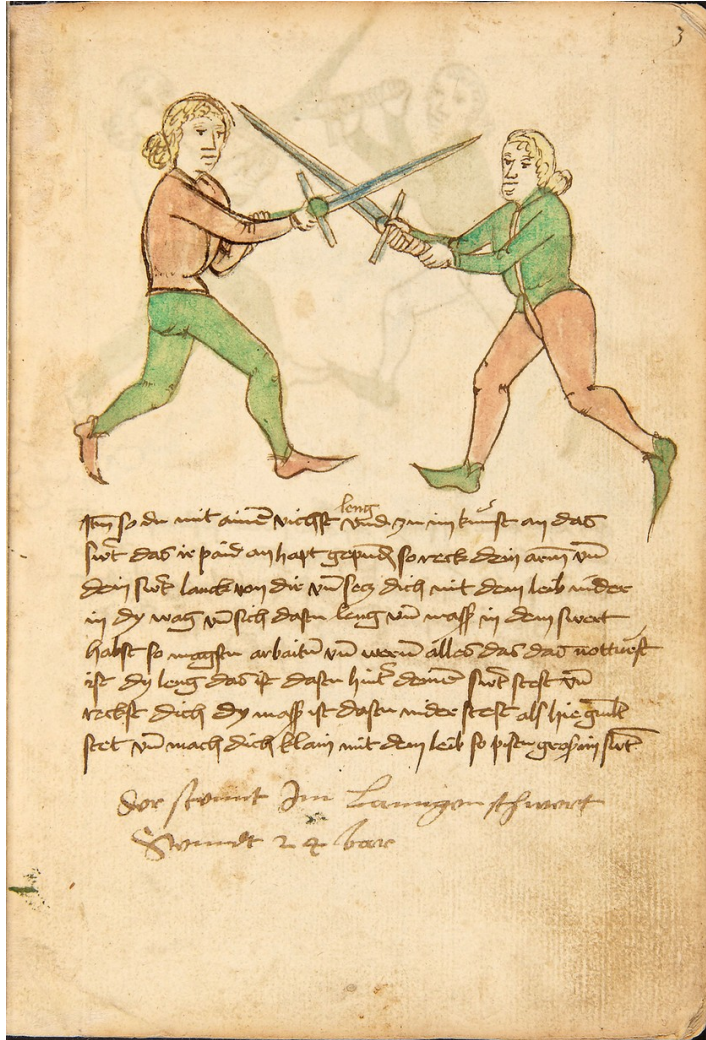 3
leng
Itm̄ so du mit ainē vichst vnd zu im kumst an das
swt̄ das ir paid an hapt gepundn̄ so reck dein arm vn̄
dein swt̄ lanck von dir vn̄ secz dich mit dem leib nider
in dy wag vn̄ sich dastu leng vn̄ mass in dem swert
habst so magstu arbaitn̄ vn̄ wern̄ alles das das notturft
ist dy leng das ist dastu hintr̄ deinem swt̄ stest vn̄
reckst dich dy mass ist dastu nider stest als hie gmalt
stet vn̄ mach dich klain mit dem leib so pistu gross im swt̄
Der stuckt Im Lanngen schwert
Sunndt 24 bar